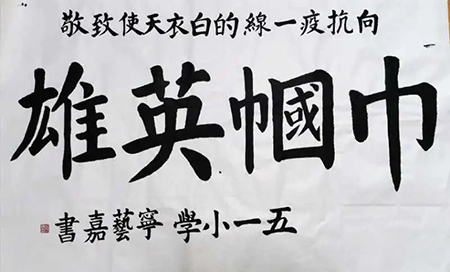 向抗疫一線的白衣天使致敬
巾幗英雄
五一小學 寧藝嘉書